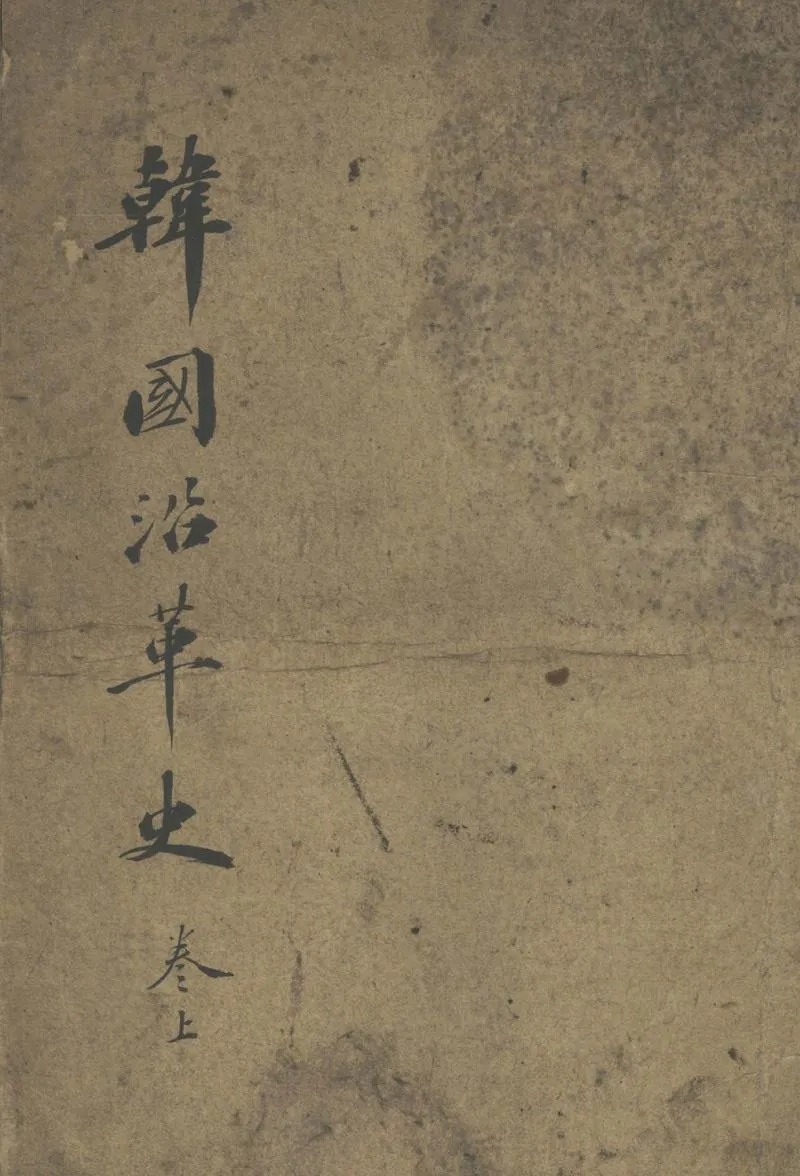 韓國沿革史 卷上